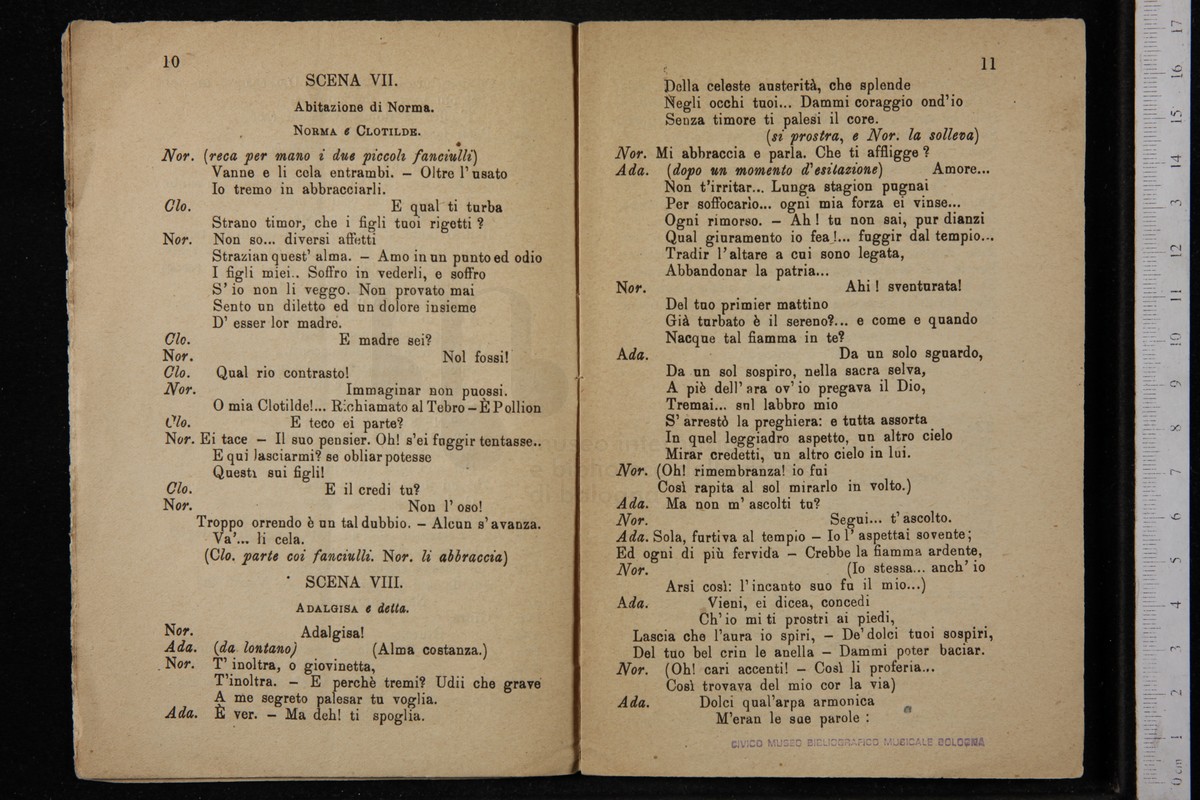 10
SCENA VII.
Abitazione di Norma.
NORMA e CLOTILDE.
Nor. (reca per mano i due piccoli fanciulli)
Vanne e li cela entrambi. — Oltre l'usato
Io tremo in abbracciarli.
Clo. E qual ti turba
Strano timor, che i figli tuoi rigetti?
Nor. Non so... diversi affetti
Strazian quest' alma. — Amo in un punto ed odio
I figli miei.. Soffro in vederli, e soffro
S' io non li veggo. Non provato mai
Sento un diletto ed un dolore insieme
D' esser lor madre.
Clo. E madre sei?
Nor. Nol fossi!
Clo. Qual rio contrasto!
Nor. Immaginar non puossi.
O mia Clotilde!... Richiamato al Tebro — È Pollion
Clo. E teco ei parte?
Nor. Ei tace — Il suo pensier. Oh! s'ei fuggir tentasse..
E qui lasciarmi? se obliar potesse
Questi sui figli!
Clo. E il credi tu?
Nor. Non l' oso!
Troppo orrendo è un tal dubbio. — Alcun s' avanza.
Va'... li cela.
(Clo. parte coi fanciulli. Nor. li abbraccia)
SCENA VIII.
ADALGISA e detta.
Nor. Adalgisa!
Ada. (da lontano) (Alma costanza.)
Nor. T' inoltra, o giovinetta,
T'inoltra. — E perchè tremi? Udii che grave
A me segreto palesar tu voglia.
Ada. È ver. — Ma deh! ti spoglia.
11
Della celeste austerità, che splende
Negli occhi tuoi... Dammi coraggio ond'io
Senza timore ti palesi il core.
(si prostra, e Nor. la solleva)
Nor. Mi abbraccia e parla. Che ti affligge?
Ada. (dopo un momento d'esitazione) Amore...
Non t'irritar... Lunga stagion pugnai
Per soffocarlo... ogni mia forza ei vinse...
Ogni rimorso. — Ah! tu non sai, pur dianzi
Qual giuramento io fea!... fuggir dal tempio...
Tradir l'altare a cui sono legata,
Abbandonar la patria...
Nor. Ahi! sventurata!
Del tuo primier mattino
Già turbato è il sereno?... e come e quando
Nacque tal fiamma in te?
Ada. Da un solo sguardo,
Da un sol sospiro, nella sacra selva,
A piè dell' ara ov' io pregava il Dio,
Tremai... sul labbro mio
S' arrestò la preghiera: e tutta assorta
In quel leggiadro aspetto, un altro cielo
Mirar credetti, un altro cielo in lui.
Nor. (Oh! rimembranza! io fui
Così rapita al sol mirarlo in volto.)
Ada. Ma non m' ascolti tu?
Nor. Segui... t' ascolto.
Ada. Sola, furtiva al tempio — Io l' aspettai sovente;
Ed ogni dì più fervida — Crebbe la fiamma ardente,
Nor. (Io stessa... anch' io
Arsi così: l'incanto suo fu il mio...)
Ada. Vieni, ei dicea, concedi
Ch' io mi ti prostri ai piedi,
Lascia che l'aura io spiri, — De' dolci tuoi sospiri,
Del tuo bel crin le anella — Dammi poter baciar.
Nor. (Oh! cari accenti! — Così li proferia...
Così trovava del mio cor la via)
Ada. Dolci qual'arpa armonica
M'eran le sue parole:
CIVICO MUSEO BIBLIOGRAFICO MUSICALE BOLOGNA